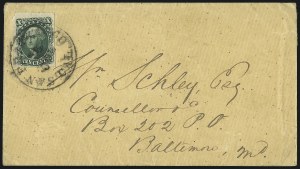 SAN
Wm Schley, Esq
Counsellor
Box 202 P.O.
Baltimore, Md.